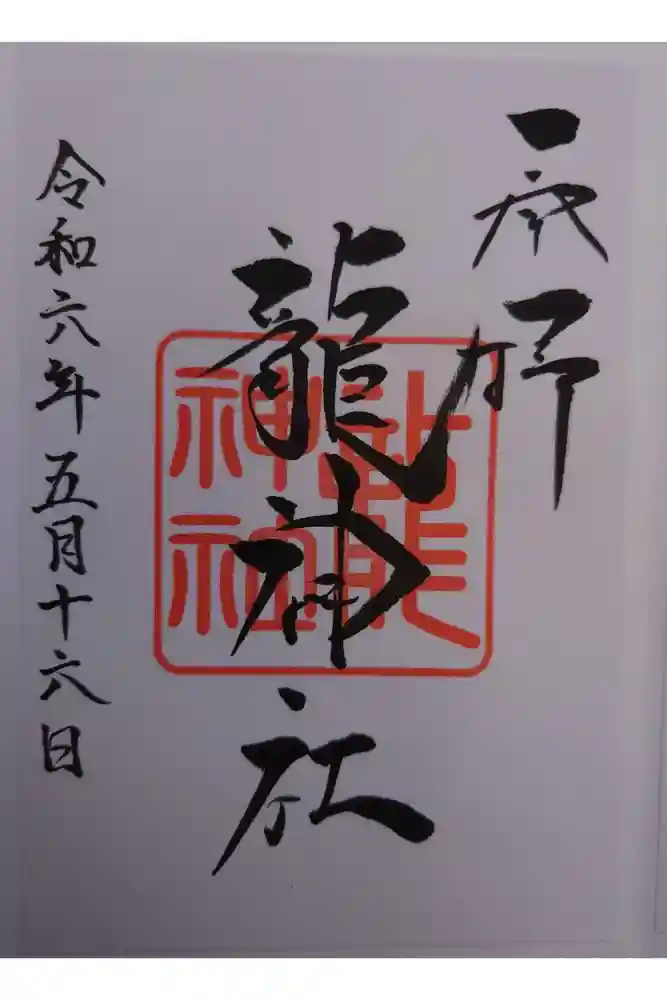 奉拝
龍神社
令和六年五月十六日
龍
神社